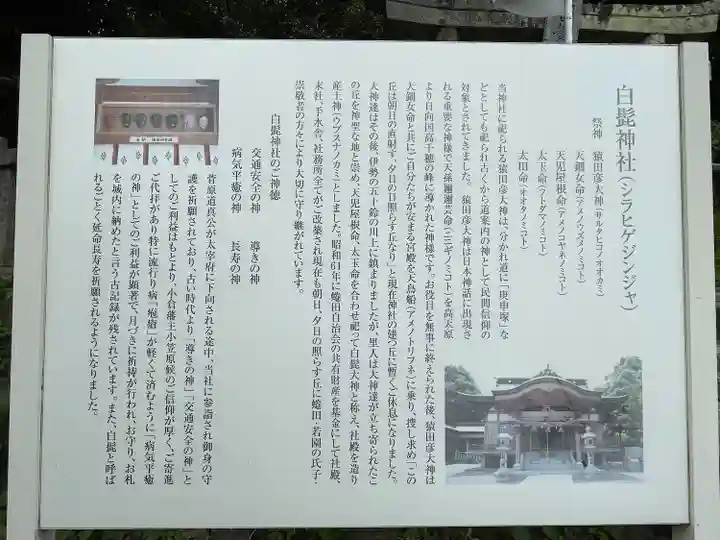 白髭神社(シラヒゲジンジャ)
祭神 猿田彦大神(サルタヒコノオオカミ)
天鈿女命(アメノウズメノミコト)
天児屋根命(アメノコヤネノミコト)
太玉命(フトダマノミコト)
太田命(オオタノミコト)
当神社に祀られる猿田彦大神は、分かれ道に「庚申塚」な
どとしても祀られ古くから道案内の神として民間信仰の
対象とされてきました。猿田彦大神は日本神話に出現さ
れる重要な神様で天孫邇邇芸命(ニニギノミコト)を高天原
より日向国高千穂の峰に導かれた神様です。お役目を無事に終えられた後、猿田彦大神は
天鈿女命と共にご自分たちが安まる宮殿を天鳥船(アメノトリフネ)に乗り、捜し求め「この
丘は朝日の直射す、夕日の日照らす丘なり」と現在神社の建つ丘に暫くご休息になりました。
大神達はその後、伊勢の五十鈴の川上に鎮まりましたが、里人は大神達が立ち寄られたこ
の丘を神聖な地と崇め、天児屋根命、太玉命を合わせ祀って白髭大神と称え、社殿を造り
産土神(ウブスナノカミ)としました。昭和61年に蜷田自治会の共有財産を基金にして社殿、
末社、手水舎、社務所全てがご改築され現在も朝日、夕日の照らす丘に蜷田・若園の氏子・
崇敬者の方々により大切に守り継がれています。
白髭神社のご神徳
交通安全の神 導きの神
病気平癒の神 長寿の神
菅原道真公が太宰府に下向される途中、当社に参詣され御身の守
護を祈願されており、古い時代より「導きの神」「交通安全の神」と
してのご利益はもとより、小倉藩主小笠原候のご信仰が厚く、ご寄進
ご代拝があり特に流行り病“疱瘡”が軽くて済むように「病気平癒
の神」としてのご利益が顕著で、月づきに祈祷が行われ、お守り、お札
を城内に納めたと言う古記録が残されています。また、白髭と呼ば
れるごとく延命長寿を祈願されるようになりました。